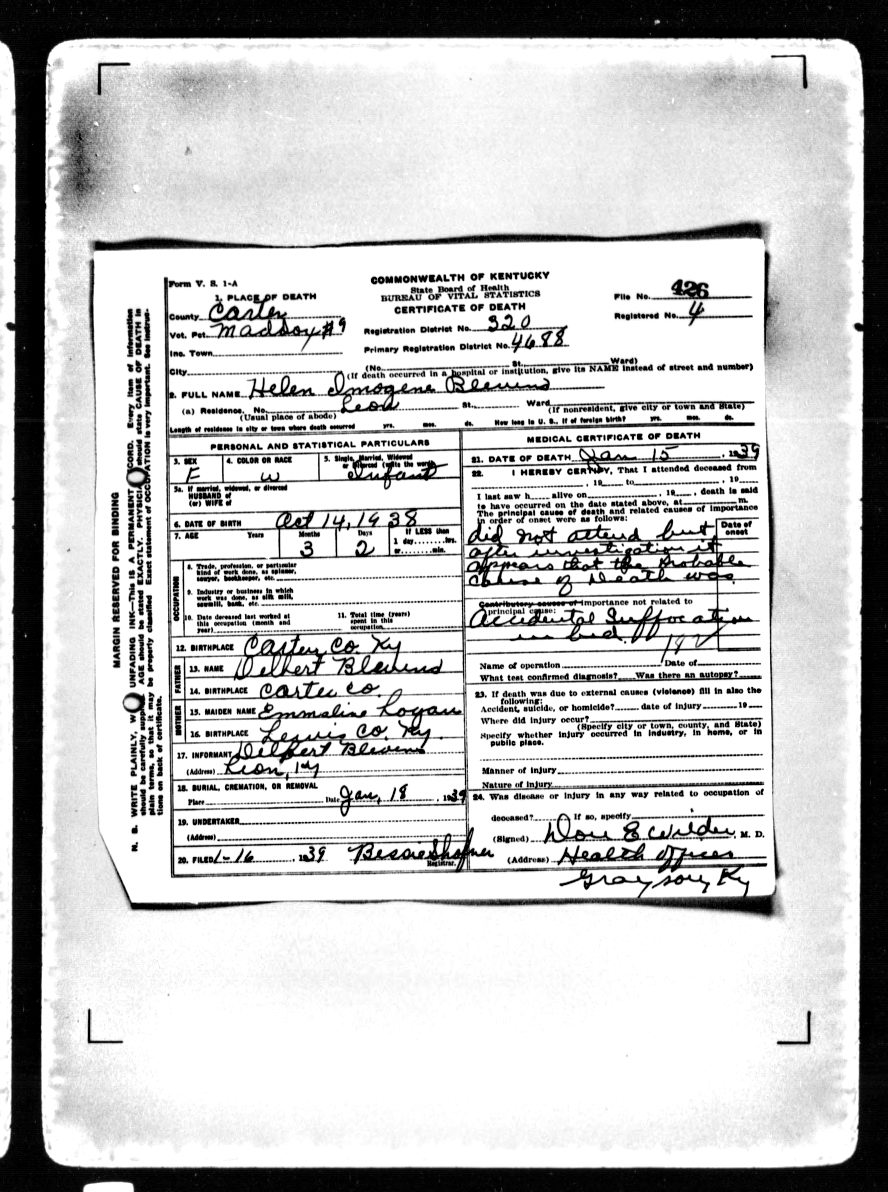 Form V. S. 1-A
COMMONWEALTH OF KENTUCKY
State Board of Health
BUREAU OF VITAL STATISTICS
CERTIFICATE OF DEATH
File No. 426
Registered No. 4
1. PLACE OF DEATH
County Carter
Vot. Pct. Maddox #9
Registration District No. 320
Inc. Town
Primary Registration District No. 4688
City (No. St. Ward)
(If death occurred in a hospital or institution, give its NAME instead of street and number)
2. FULL NAME Helen Imogene Blevins
(a) Residence. No. Leon St. Ward
(Usual place of abode) (If nonresident, give city or town and State)
Length of residence in city or town where death occurred yrs. mos. ds. How long in U. S., if of foreign birth? yrs. mos. ds.
PERSONAL AND STATISTICAL PARTICULARS
3. SEX F
4. COLOR OR RACE W
5. Single, Married, Widowed
or Divorced (write the word)
Infant
5a. If married, widowed, or divorced
HUSBAND of
(or) WIFE of
6. DATE OF BIRTH Oct 14, 1938
7. AGE Years Months 3 Days 2
If LESS than
1 day,......hrs.
or......min.
OCCUPATION
8. Trade, profession, or particular
kind of work done, as spinner,
sawyer, bookkeeper, etc.
9. Industry or business in which
work was done, as silk mill,
sawmill, bank, etc.
10. Date deceased last worked at
this occupation (month and
year)
11. Total time (years)
spent in this
occupation
12. BIRTHPLACE Carter Co. Ky
FATHER
13. NAME Delbert Blevins
14. BIRTHPLACE Carter Co.
MOTHER
15. MAIDEN NAME Emmaline Logan
16. BIRTHPLACE Lewis Co. Ky.
17. INFORMANT Delbert Blevins
(Address) Leon, Ky
18. BURIAL, CREMATION, OR REMOVAL
Place Date Jan, 18, 1939
19. UNDERTAKER
(Address)
20. FILED 1-16, 1939
Registrar.
MEDICAL CERTIFICATE OF DEATH
21. DATE OF DEATH Jan 15, 1939
22. I HEREBY CERTIFY, That I attended deceased from
, 19 to , 19
I last saw h alive on , 19 , death is said
to have occurred on the date stated above, at m.
The principal cause of death and related causes of importance
in order of onset were as follows:
Date of
onset
did not attend but
after investigation it
appears that the probable
cause of death was
Contributory causes of importance not related to
principal cause:
Accidental Suffocation
in bed.
Name of operation Date of
What test confirmed diagnosis? Was there an autopsy?
23. If death was due to external causes (violence) fill in also the
following:
Accident, suicide, or homicide? date of injury 19
Where did injury occur?
(Specify city or town, county, and State)
Specify whether injury occurred in industry, in home, or in
public place.
Manner of injury
Nature of injury
24. Was disease or injury in any way related to occupation of
deceased? If so, specify
(Signed) Don E Wilder, M. D.
(Address) Health Officer
Grayson, Ky
MARGIN RESERVED FOR BINDING